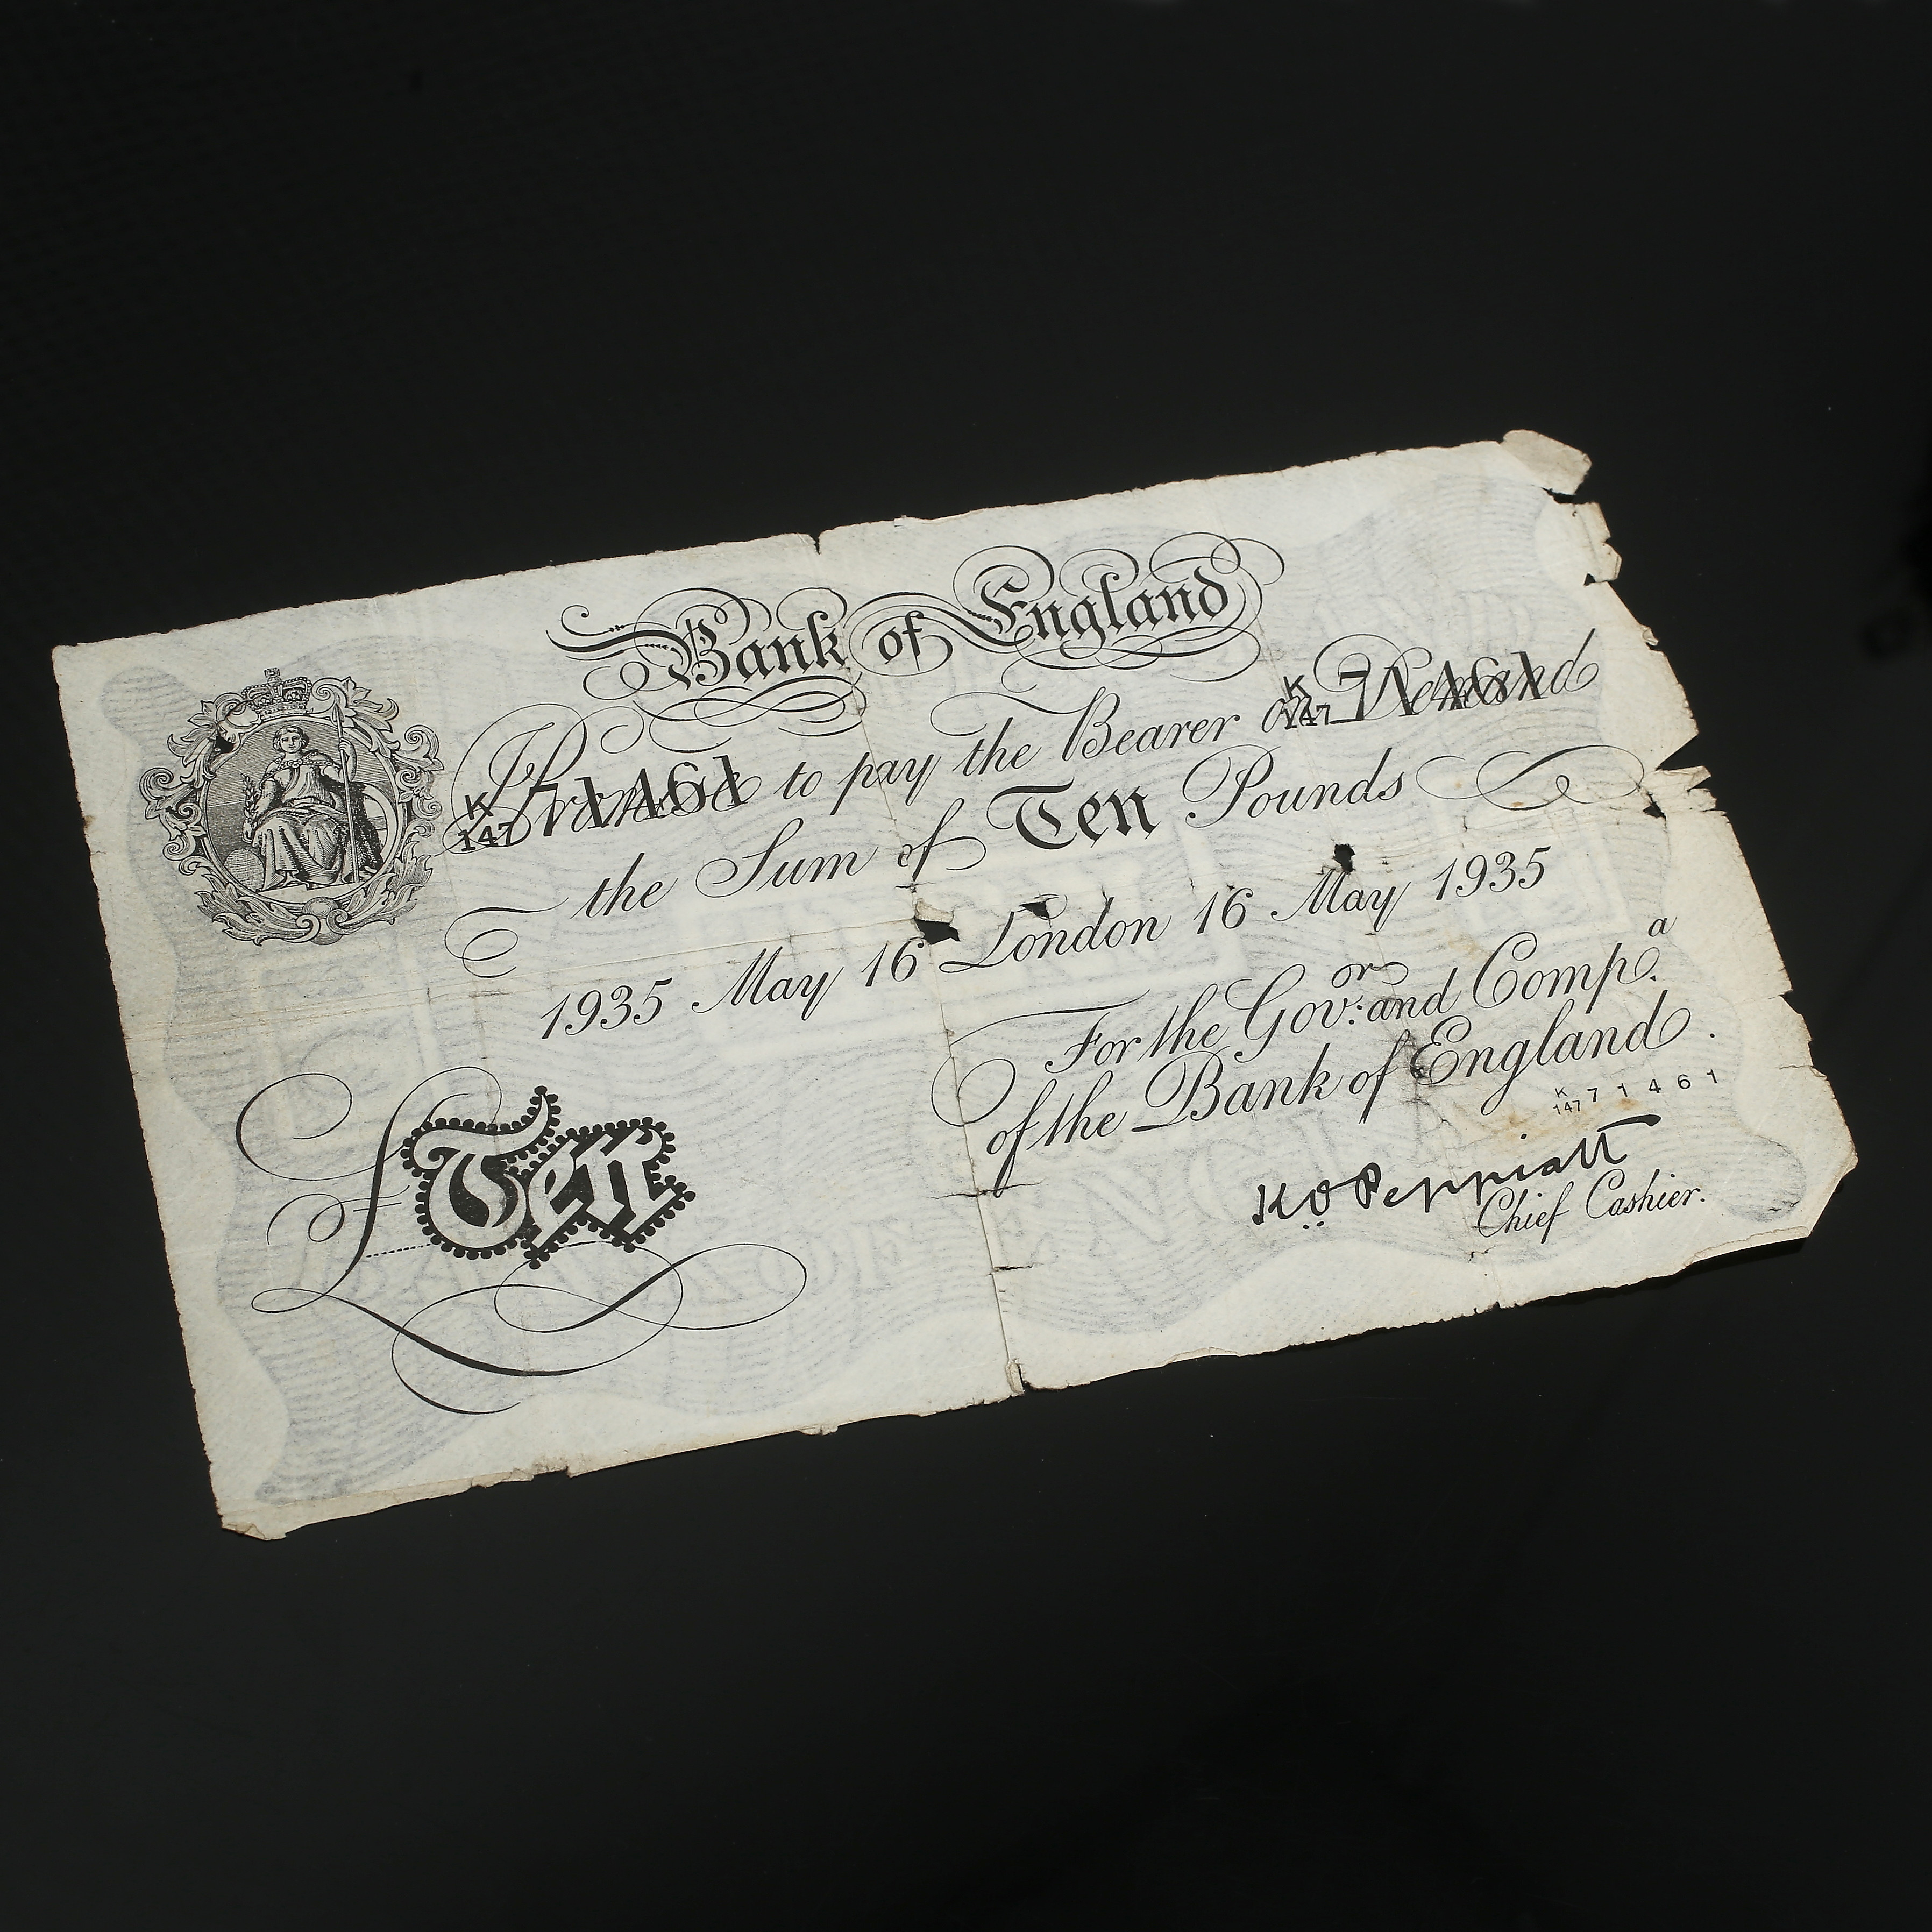 Bank of England
K 147 71461
K 147 71461
Promise to pay the Bearer on Demand
the Sum of Ten Pounds
1935 May 16 London 16 May 1935
For the Gov:or and Comp.a
of the Bank of England.
K 147 71461
K.O. Peppiatt
Chief Cashier.
£Ten